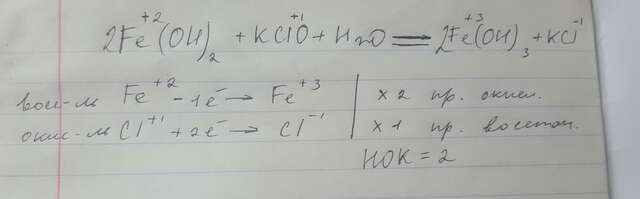 2Fe⁺²(OH)₂ + KCl⁺¹O + H₂O = 2Fe⁺³(OH)₃ + KCl⁻¹
восс-ль Fe⁺² - 1e⁻ → Fe⁺³ | x 2 пр. окисл.
окис-ль Cl⁺¹ + 2e⁻ → Cl⁻¹ | x 1 пр. восстан.
НОК = 2